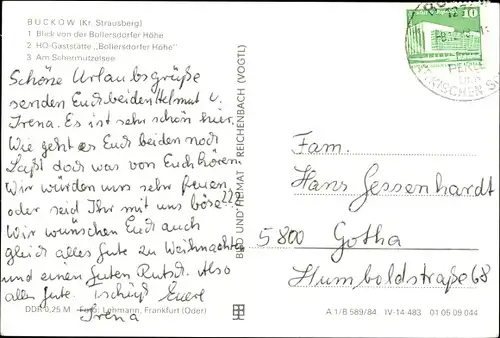 BUCKOW (Kr. Strausberg)
1 Blick von der Bollersdorfer Höhe
2 HO-Gaststätte „Bollersdorfer Höhe"
3 Am Schermützelsee
Schöne Urlaubsgrüße
senden Euch beiden Helmut u.
Irena. Es ist sehr schön hier.
Wie geht es Euch beiden noch
Laßt doch was von Euch hören
Wir würden uns sehr freuen
oder seid Ihr mit uns böse??
Wir wünschen Euch auch
gleich alles Gute zu Weihnachten
und einen guten Rutsch. Also
alles Gute. Tschüß Eure
Irena
DDR 0,25 M Foto: Lehmann, Frankfurt (Oder)
BILD UND HEIMAT REICHENBACH (VOGTL)
10
Fam.
Hans Gessenhardt
5800 Gotha
Humboldstraße 68
A 1/B 589/84 IV-14-483 01 05 09 044